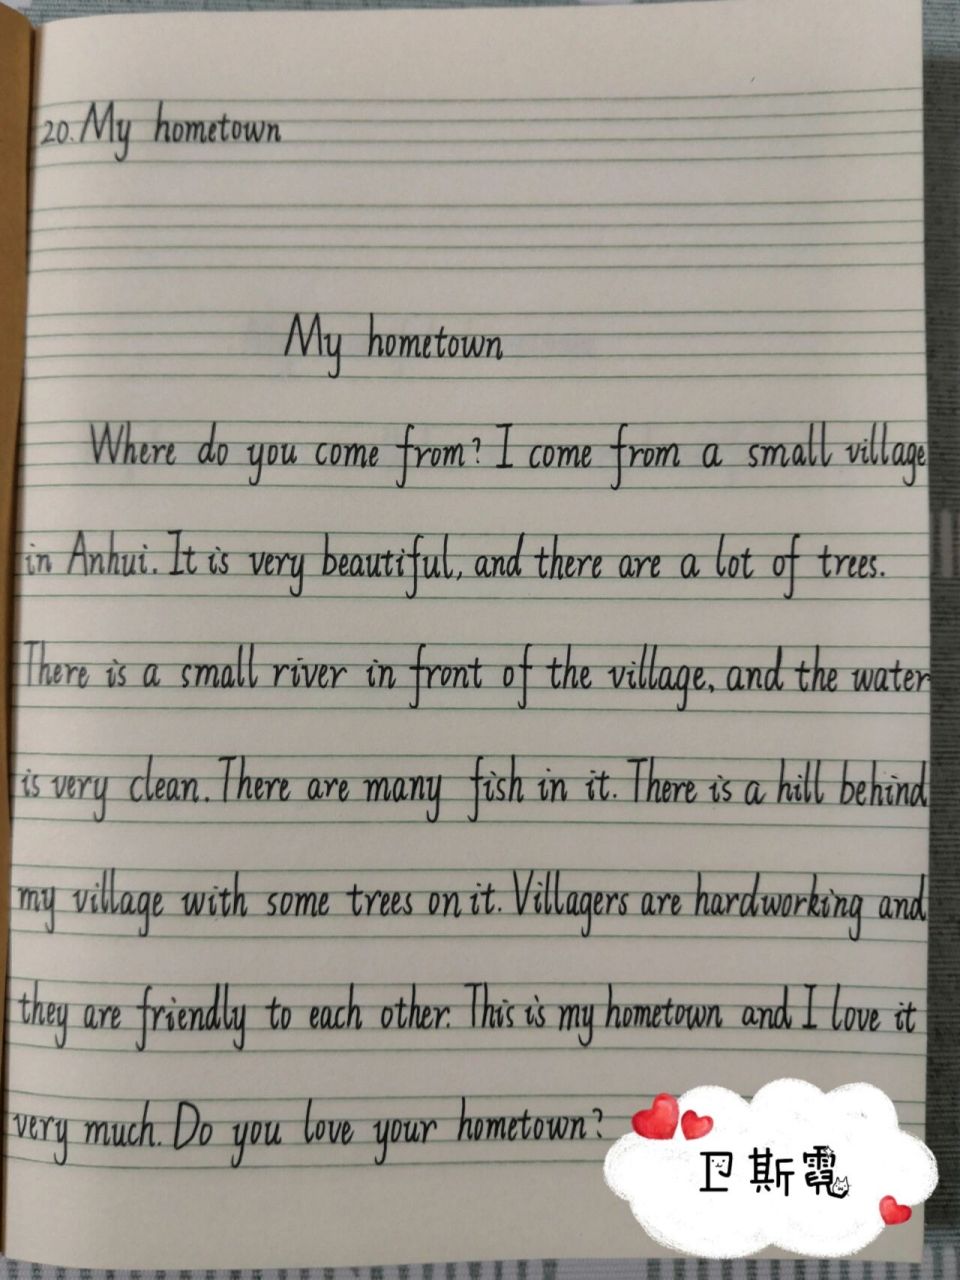 20. My hometown
My hometown
Where do you come from? I come from a small village
in Anhui. It is very beautiful, and there are a lot of trees.
There is a small river in front of the village, and the water
is very clean. There are many fish in it. There is a hill behind
my village with some trees on it. Villagers are hardworking and
they are friendly to each other. This is my hometown and I love it
very much. Do you love your hometown?
卫斯霓